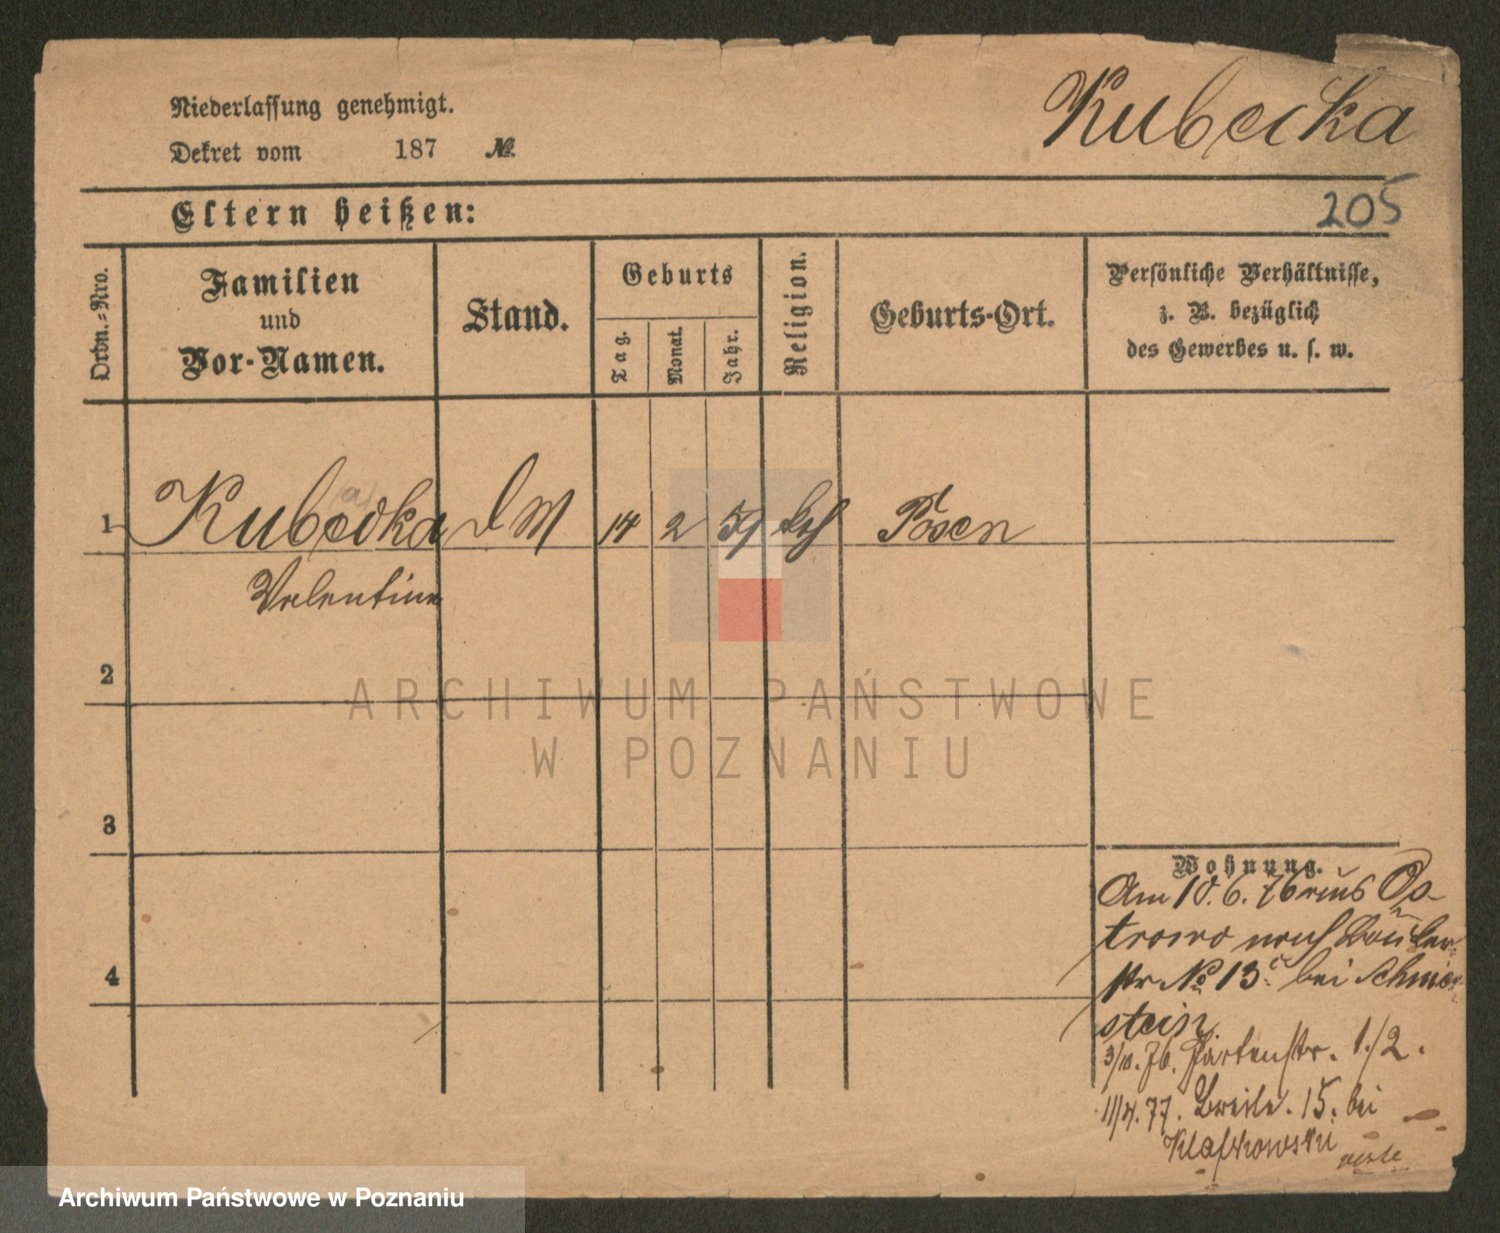 Niederlassung genehmigt.
Kubecka
Dekret vom 187 №.
Eltern heißen:
205
Ordn.-Nro.
Familien
und
Vor-Namen.
Stand.
Geburts
Tag.
Monat.
Jahr.
Religion.
Geburts-Ort.
Persönliche Verhältnisse,
z. B. bezüglich
des Gewerbes u. s. w.
1 Kubecka D M 14 2 59 Posen
Valentine
2
3
4
Wohnung.
Am 10. 6. 76 aus Os-
trowo nach
str. No 13 bei
stein.
3/10. 76. Gartenstr. 1./2.
11/4. 77. Breite. 15. bei
Klafkowski
ARCHIWUM PAŃSTWOWE
W POZNANIU
Archiwum Państwowe w Poznaniu